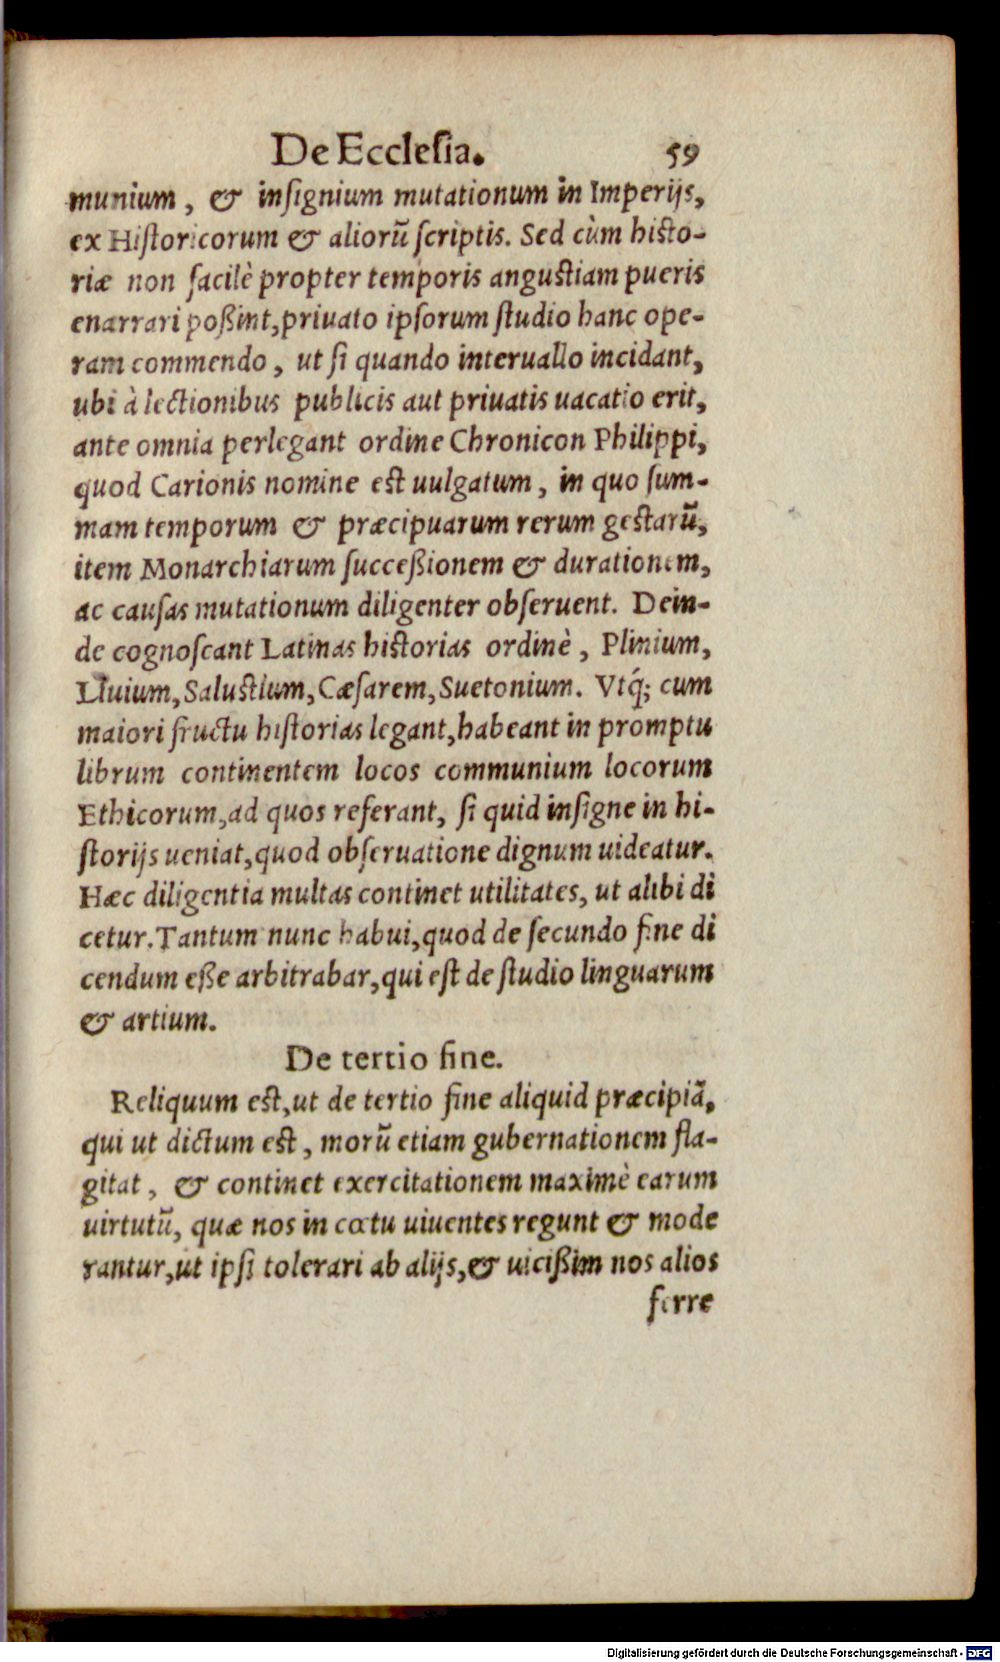 De Ecclesia. 59
munium, & inſignium mutationum in Imperijs,
ex Hiſtoricorum & aliorū ſcriptis. Sed cùm histo-
riæ non facilè propter temporis angustiam pueris
enarrari poßint, priuato ipſorum ſtudio hanc ope-
ram commendo, ut ſi quando interuallo incidant,
ubi à lectionibus publicis aut priuatis uacatio erit,
ante omnia perlegant ordine Chronicon Philippi,
quod Carionis nomine est uulgatum, in quo ſum-
mam temporum & præcipuarum rerum gestarū,
item Monarchiarum ſucceßionem & durationem,
ac cauſas mutationum diligenter obſeruent. Dein-
de cognoſcant Latinas historias ordinè, Plinium,
Liuium, Salustium, Cæſarem, Suetonium. Vtq́; cum
maiori fructu hiſtorias legant, habeant in promptu
librum continentem locos communium locorum
Ethicorum, ad quos referant, ſi quid inſigne in hi-
ſtorijs ueniat, quod obſeruatione dignum uideatur.
Hæc diligentia multas continet utilitates, ut alibi di
cetur. Tantum nunc habui, quod de ſecundo fine di
cendum eße arbitrabar, qui eſt de ſtudio linguarum
& artium.
De tertio fine.
Reliquum est, ut de tertio fine aliquid præcipiā,
qui ut dictum est, morū etiam gubernationem fla-
gitat, & continet exercitationem maximè earum
uirtutū, quæ nos in cœtu uiuentes regunt & mode
rantur, ut ipſi tolerari ab alijs, & uicißim nos alios
ferre
Digitalisierung gefördert durch die Deutsche Forschungsgemeinschaft - DFG